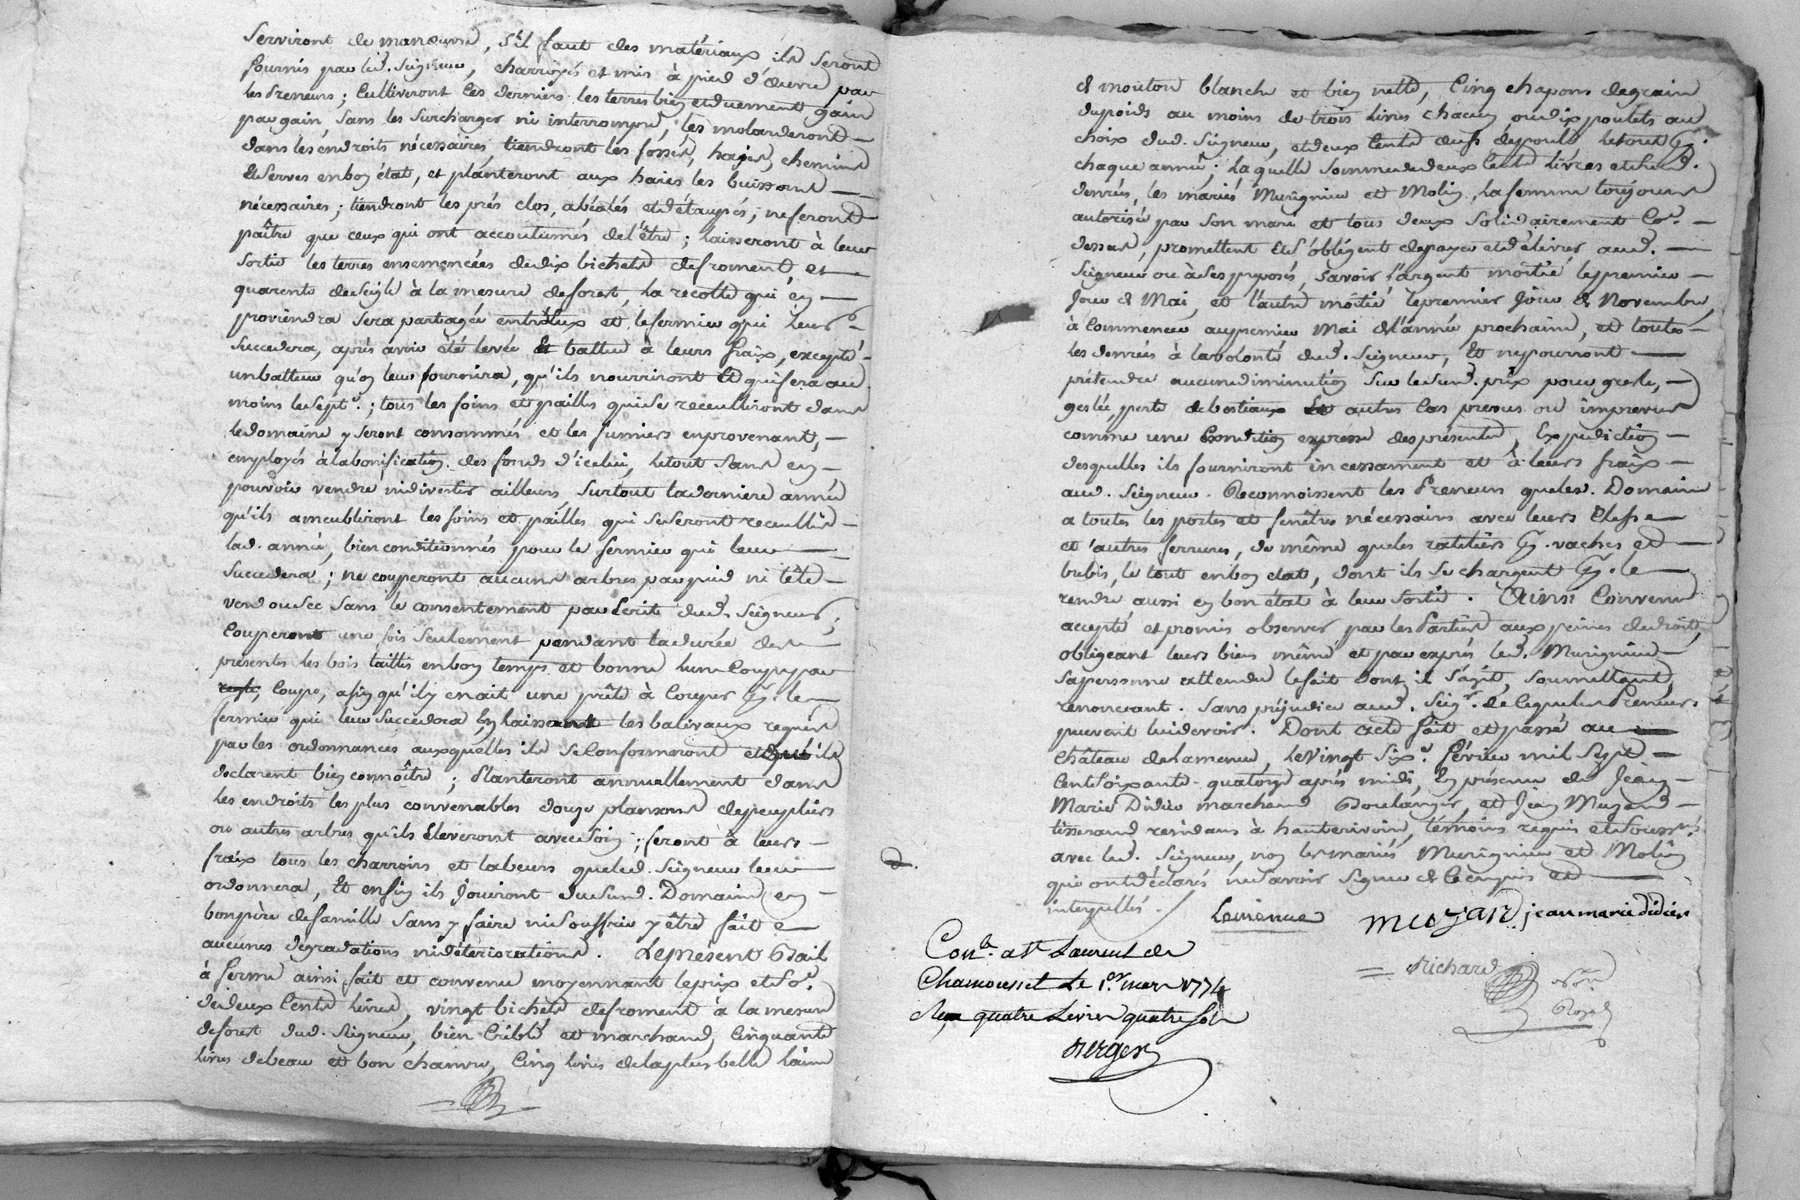 Serviront de manœuvre, s'il faut des matériaux ils seront
fournis par led. Seigneur, charroyés et mis à pied d'œuvre par
les Preneurs; Cultiveront ces derniers les terres bien et duement gain
par gain, sans les surcharger ni interrompre, les
dans les endroits nécessaires, tiendront les fossés, hayes, chemins
et serves en bon état, et planteront aux haies les buissons
nécessaires; tiendront les prés clos, abéalés et détaupés; ne feront
paître que ceux qui ont accoutumés de l'être; laisseront à leur
sortie les terres ensemencées de dix bichets de froment, et
quarente de seigle à la mesure de forest, la récolte qui en
proviendra sera partagée entr'eux et le fermier qui leur
succedera, après avoir été levée et battue à leurs fraix, excepté
un batteur qu'on leur fournira, qu'ils nourriront et qui sera au
moins le sept.e; tous les foins et pailles qui se receulliront dans
le domaine y seront consommés et les fumiers en provenant,
employés à la bonification des fonds d'icelui, le tout sans en
pouvoir vendre ni divertir ailleurs, surtout la derniere année
qu'ils ameubliront les foins et pailles qui se seront receullis
lad. année, bien conditionnés pour le fermier qui leur
succedera; ne couperont aucuns arbres par pied ni tête
verd ou sec sans le consentement par écrit dud. Seigneur;
Couperont une fois seulement pendant la durée des
présentes les bois taillis en bon temps et bonne lune coupe par
coupe, afin qu'il y en ait une prête à couper p.r le
fermier qui leur succedera, en laissant les balivaux requis
par les ordonnances auxquelles ils se conformeront et qu'ils
déclarent bien connoître; Planteront annuellement dans
les endroits les plus convenables douze plansons de peupliers
ou autres arbres qu'ils éleveront avec soin; feront à leurs
fraix tous les charrois et labeurs que led. Seigneur leur
ordonnera, Et enfin ils jouiront du susd. Domaine en
bon père de famille sans y faire ni souffrir y être fait
aucunes dégradations ni déteriorations. Le présent Bail
à ferme ainsi fait et convenu moyennant le prix et so.e
de deux Cents livres, vingt bichets de froment à la mesure
de forest dud. Seigneur, bien criblé et marchand, Cinquante
livres de beau et bon chanvre, Cinq livres de la plus belle laine
de mouton blanche et bien nette, Cinq chapons de grain
du poids au moins de trois livres chacun ou dix poulets au
choix dud. Seigneur, et deux cents œufs de poule le tout p.r
chaque année; laquelle somme de deux Cents livres et susd.
denrées, les mariés Murigneux et Molin, la femme toujours
autorisée par son mari et tous deux solidairement Co.e
dessus, promettent et s'obligent de payer et délivrer aud.
Seigneur ou à ses préposés, savoir l'argent moitié le premier
jour de Mai, et l'autre moitié le premier jour de Novembre,
à commencer au premier Mai de l'année prochaine, et toutes
les denrées à la volonté dud. Seigneur, et ne pourront
prétendre aucune diminution sur le susd. prix pour grele,
gelée, perte de bestiaux et autres Cas prévus ou imprévus
comme une Condition expresse des présentes, Expédition
desquelles ils fourniront incessament et à leurs fraix
aud. Seigneur. Reconnoissent les Preneurs que led. Domaine
a toutes les portes et fenêtres nécessaires avec leurs Clefs
et autres ferrures, de même que les rateliers p.r vaches et
bubis, le tout en bon état, dont ils se chargent p.r le
rendre aussi en bon état à leur sortie. Ainsi Convenu
accepté et promis observer par les Parties aux peines de droit,
obligeant leurs biens même et par exprès led. Murigneux
sa personne attendu le fait dont il s'agit, soumettant,
renonceant. Sans préjudice aud. Seig.r de ce que les Preneurs
peuvent lui devoir. Dont acte fait et passé au
Château de Lamenue, le vingt six.e février mil sept
Cent soixante quatorze après midi, En présence de Jean
Marie Didier marchand Boulanger, et Jean Muzard
tisserand residans à hauterivoire, témoins requis et souss.nés
avec led. Seigneur, non les mariés Murigneux et Molin
qui ont déclarés ne savoir signer de ce enquis et
interpellés.
Lamenue muzard jean marie didier
Con.lé a St Laurent de
Chamousset Le 1.er mars 1774
Reçu quatre Livres quatre sols
Richard